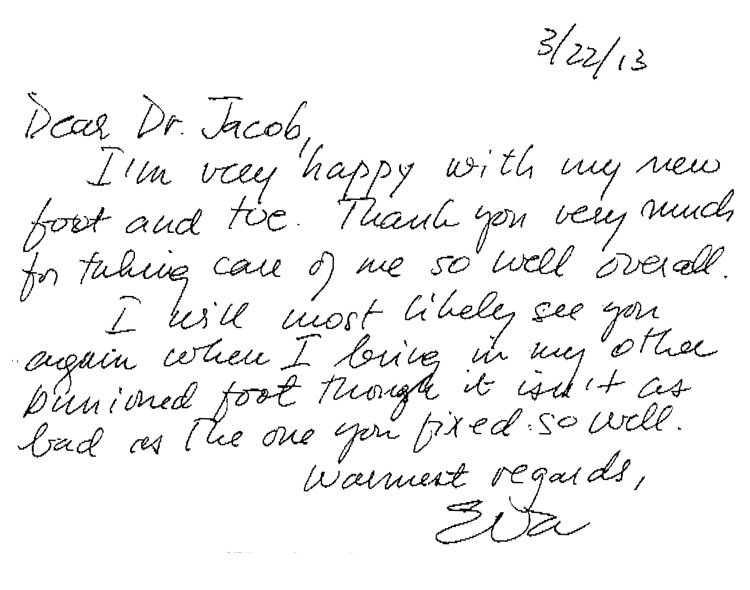 3/22/13
Dear Dr. Jacob,
I'm very happy with my new
foot and toe. Thank you very much
for taking care of me so well overall.
I will most likely see you
again when I bring in my other
bunioned foot though it isn't as
bad as the one you fixed so well.
Warmest regards,
Eva